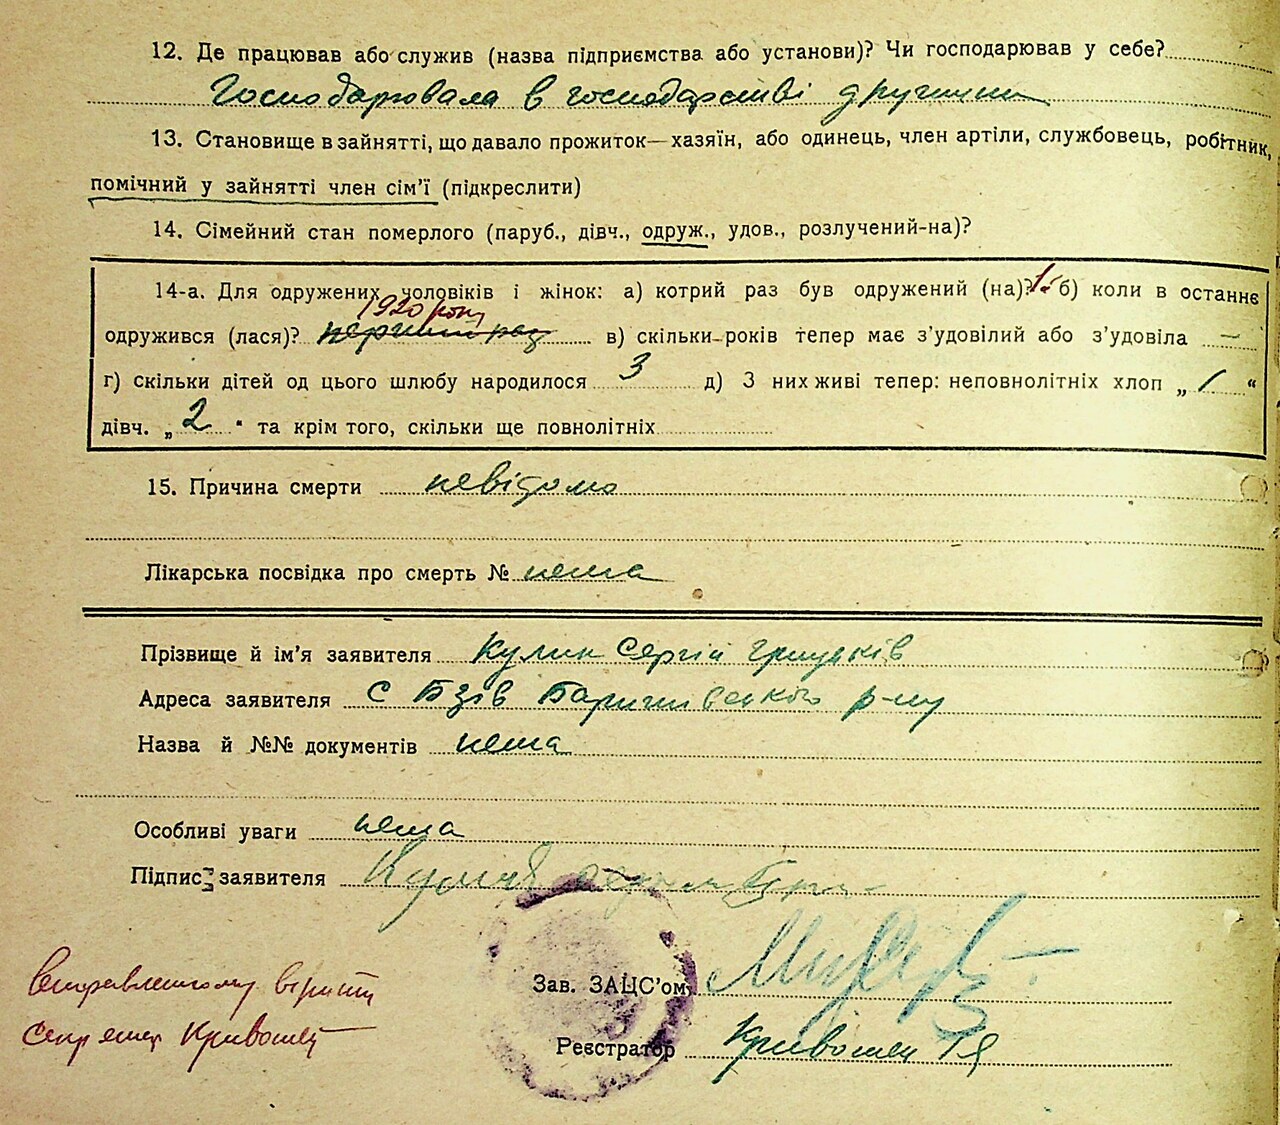 12. Де працював або служив (назва підприємства або установи)? Чи господарював у себе?
Господарювала в господарстві дружини
13. Становище в зайнятті, що давало прожиток—хазяїн, або одинець, член артіли, службовець, робітник,
помічний у зайнятті член сім'ї (підкреслити)
14. Сімейний стан померлого (паруб., дівч., одруж., удов., розлучений-на)?
14-а. Для одружених чоловіків і жінок: а) котрий раз був одружений (на)? 1. б) коли в останнє
1920 року
одружився (лася)? перший раз в) скільки років тепер має з'удовілий або з'удовіла —
г) скільки дітей од цього шлюбу народилося 3 д) З них живі тепер: неповнолітніх хлоп „1“
дівч. „2" та крім того, скільки ще повнолітніх
15. Причина смерти невідома
Лікарська посвідка про смерть № нема
Прізвище й ім'я заявителя Кулик Сергій
Адреса заявителя с Бзів Баришівського р-ну
Назва й №№ документів нема
Особливі уваги нема
Підпис заявителя
Зав. ЗАЦС'ом
Виправленому вірити
Секретар Кривошей
Реєстратор Кривошей